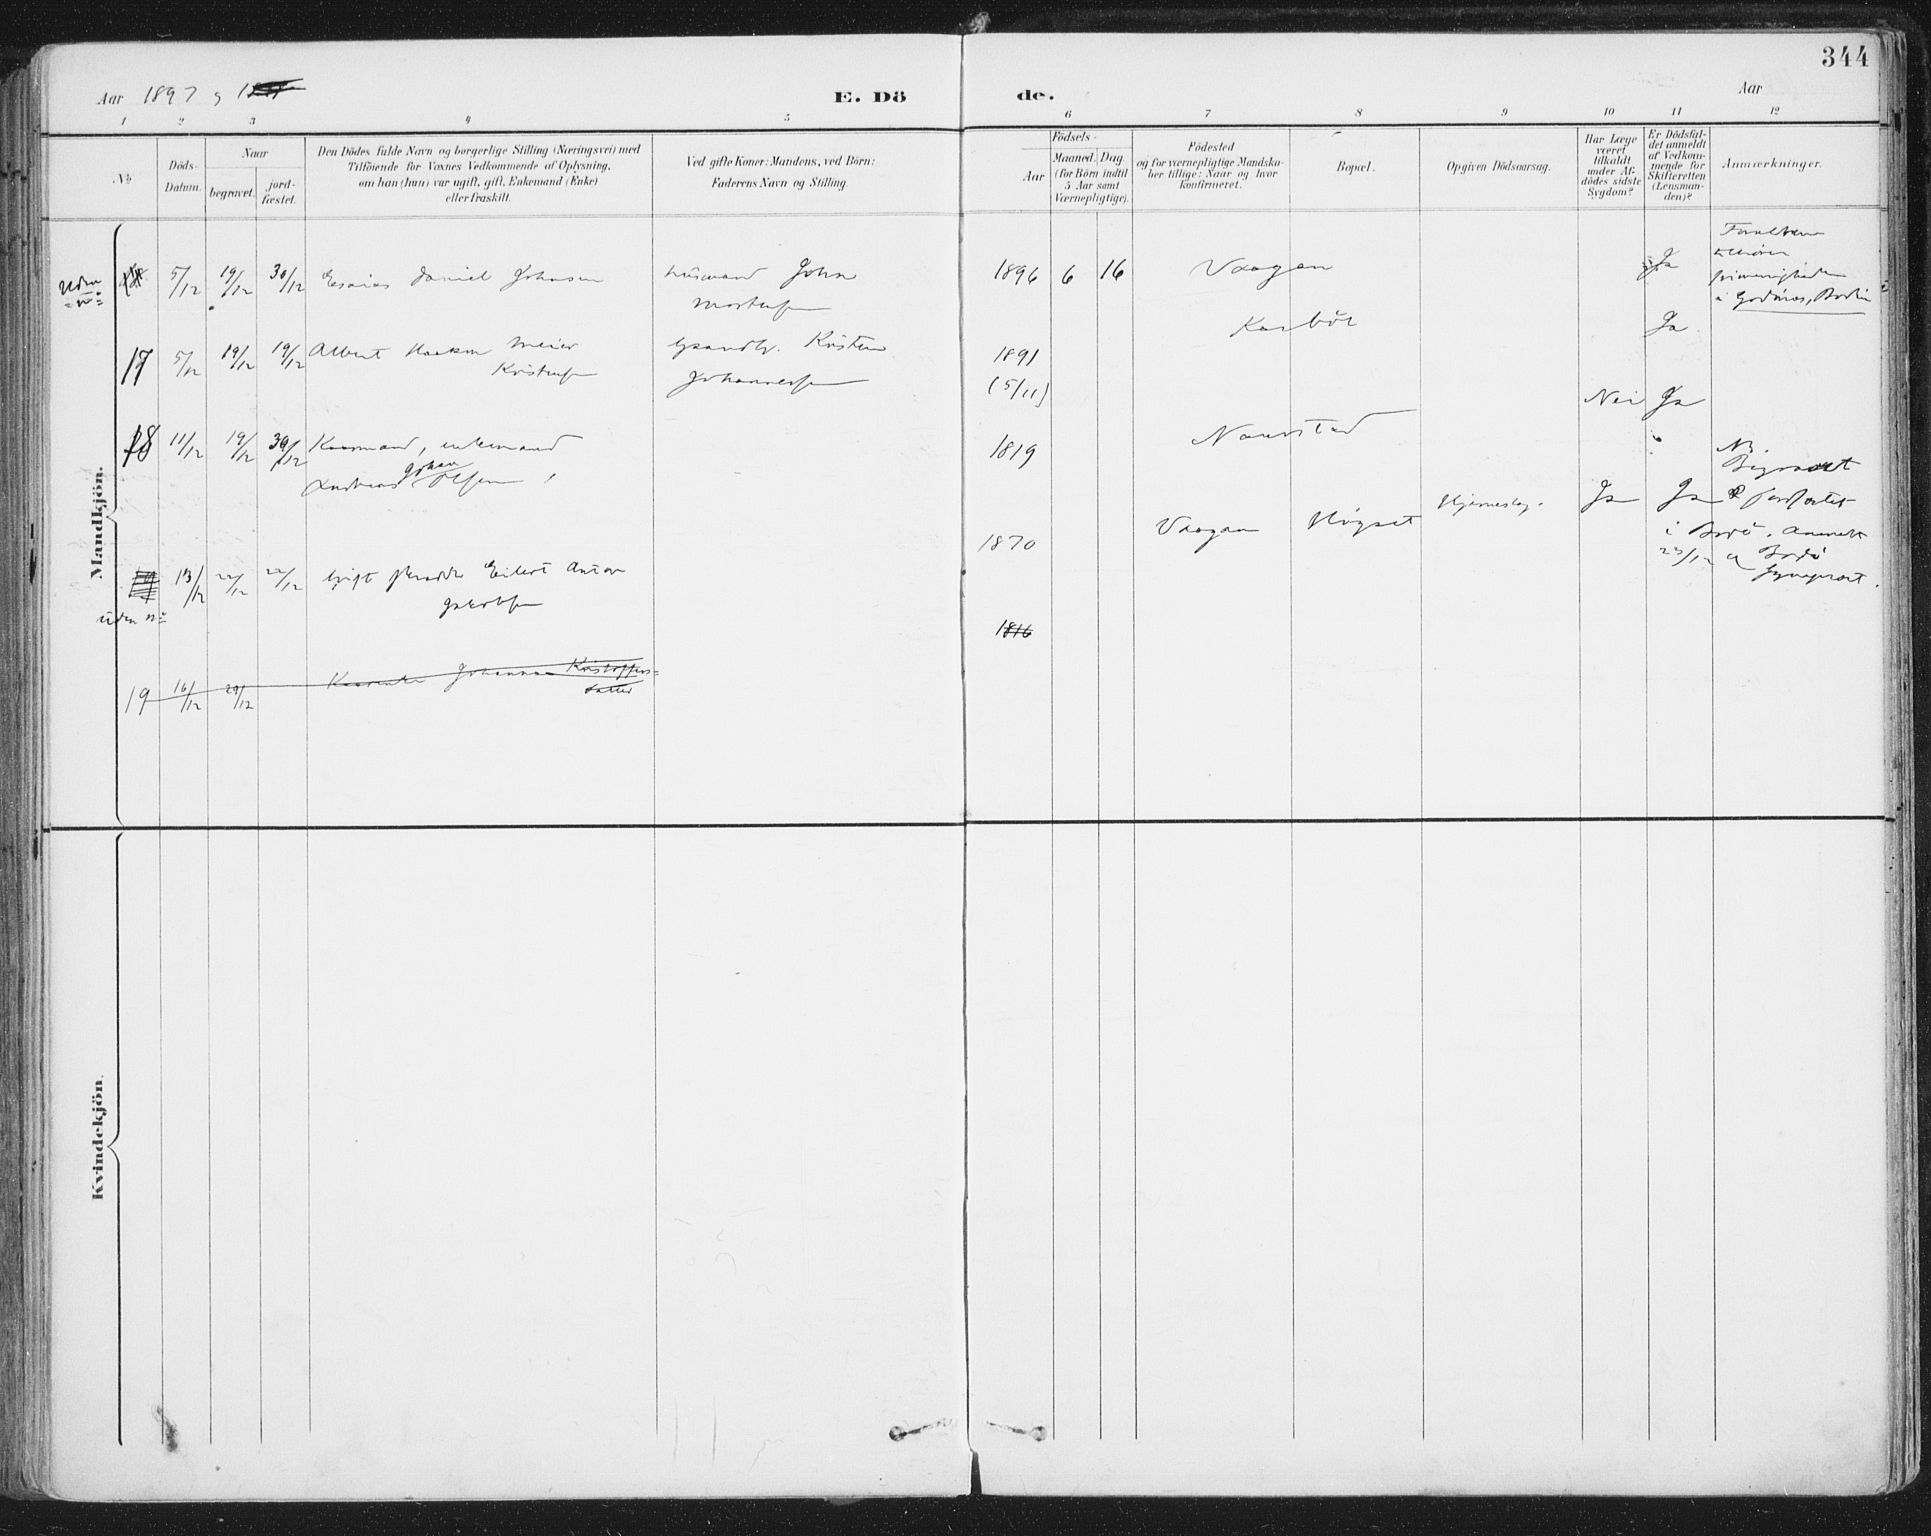 344
Aar 1897
E. Dö de.
Aar
1 2 3 4 5 6 7 8 9 10 11 12
No
Döds-
Datum.
Naar
begravet.
jord-
fæstet.
Den Dödes fulde Navn og borgerlige Stilling (Næringsvei) med
Tilföiende for Voxnes Vedkommende af Oplysning,
om han (hun) var ugift, gift, Enkemand (Enke)
eller fraskilt.
Ved gifte Koner: Mandens, ved Börn:
Faderens Navn og Stilling.
Födsels-
Aar
Maaned. Dag.
(for Börn indtil
5 Aar samt
Værnepligtige).
Födested
og for værnepligtige Mandska-
ber tillige: Naar og hvor
konfirmeret.
Bopæl.
Opgiven Dödsaarsag.
Har Læge
været
tilkaldt
under Af-
dödes sidste
Sygdom?
Er Dödsfal-
det anmeldt
af Vedkom-
mende for
Skifteretten
(Lensman-
den)?
Anmærkninger.
Mandkjön.
Uden
No
5/12 19/12 30/12 Esaias Daniel Johnsen
Husmand John
Mortensen
1896 6 16 Vaagan Ja
Forældrene
i Godönes, Bodin
17 5/12 19/12 19/12 Albert Haakon Meier
Kristensen
Gaardbr. Kristen
Johannessen
1891
(5/11)
Karbøl Ja
18 11/12 19/12 30/12 Kaarmand, enkemand
Andreas Johan Olsen
1819 Naurstad Nei Ja
13/12 22/12 22/12 Gift Eilert Anton
Jakobsen
uden No
1870 Vaagan Høgset Hjerneslag. Ja Ja
Begravet
i Bodö.
23/12 Bodö
19 16/12 29/12 Johanna Kristoffers-
datter
1816
Kvindekjön.